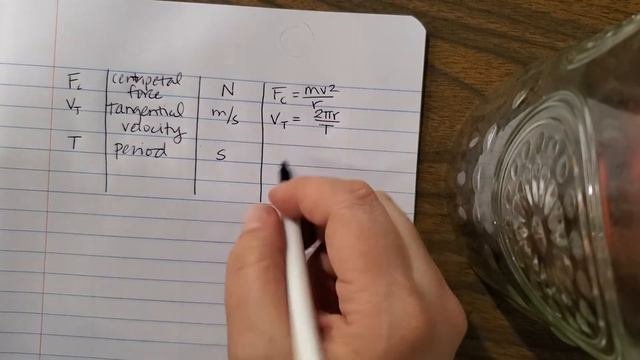 Fc centripetal force N Fc = mv2/r
VT tangential velocity m/s VT = 2πr/T
T period s